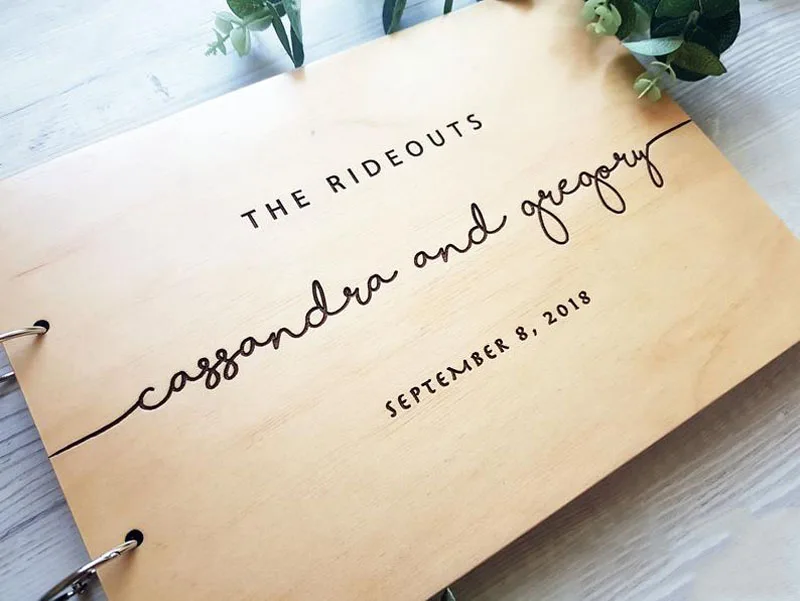 THE RIDEOUTS
cassandra and gregory
SEPTEMBER 8, 2018